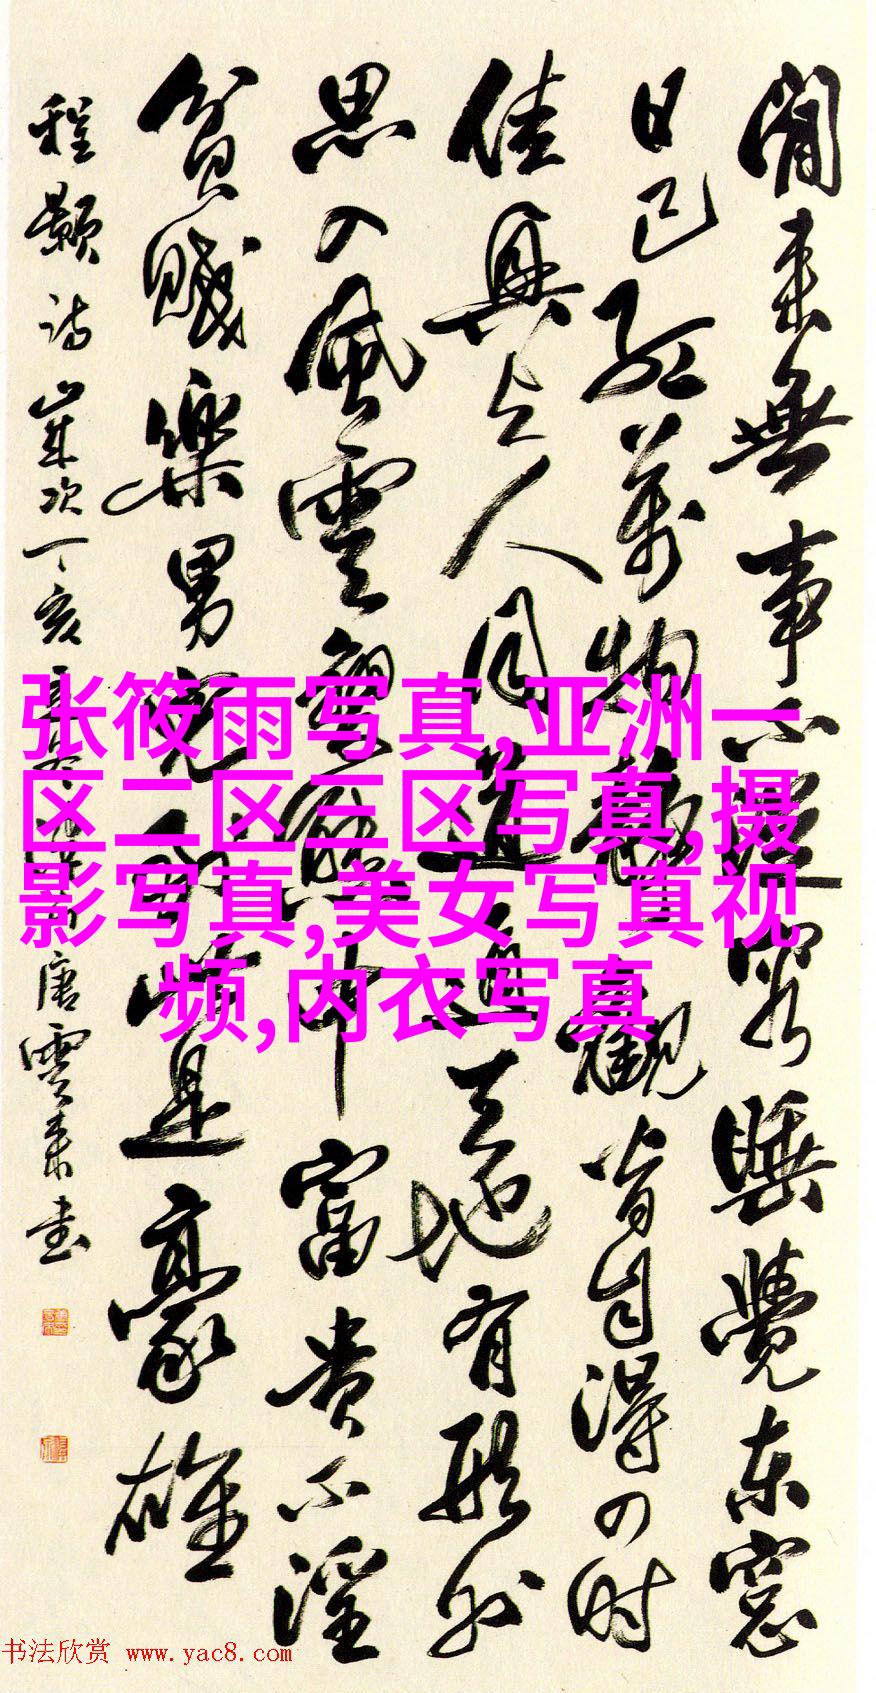 閒来無事不從容睡覺东窓
日已红萬物静觀皆自得四时
佳興与人同道通天地有形外
思入風雲變態中富贵不淫
貧賤樂男兒到此是豪雄
程颢诗歲次丁亥夏唐雲来书
张筱雨写真,亚洲一
区二区三区写真,摄
影写真,美女写真视
频,内衣写真
书法欣赏 www.yac8.com